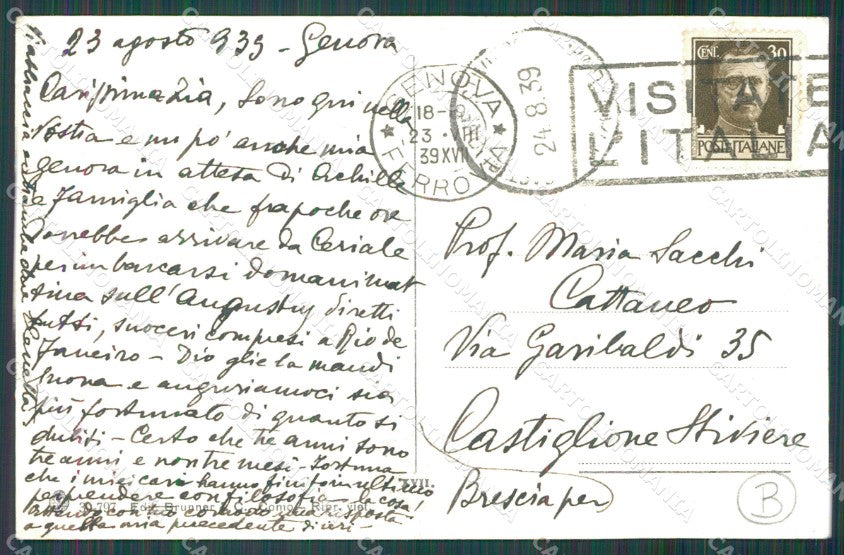 23 agosto 939 - Genova
Carissima zia, sono qui nella
vostra e un po' anche mia
genova in attesa di Achille
e famiglia che fra poche ore
dovrebbe arrivare da Ceriale
per imbarcarsi domani mat
tina sull' Augustus diretti
tutti, suoceri compresi a Rio de
Janeiro - Dio glie la mandi
buona e auguriamoci sia
più fortunato di quanto si
dubiti - Certo che tre anni sono
tre anni e non tre mesi - Fortuna
che i miei cari hanno finito in ultimo
prendere con filosofia la cosa!
a quella mia precedente di ieri -
GENOVA
FERRO
18-
23 · VIII
39 XVII
24.8.39
VISITATE
L'ITALIA
CENT. 30
POSTE ITALIANE
Prof. Maria Sacchi
Cattaneo
Via Garibaldi 35
Castiglione Stiviere
Brescia per
B
XVII.
30-797 - Ediz. Brunner & C. Como - Ripr. viet.
CARTOLINOMANIA